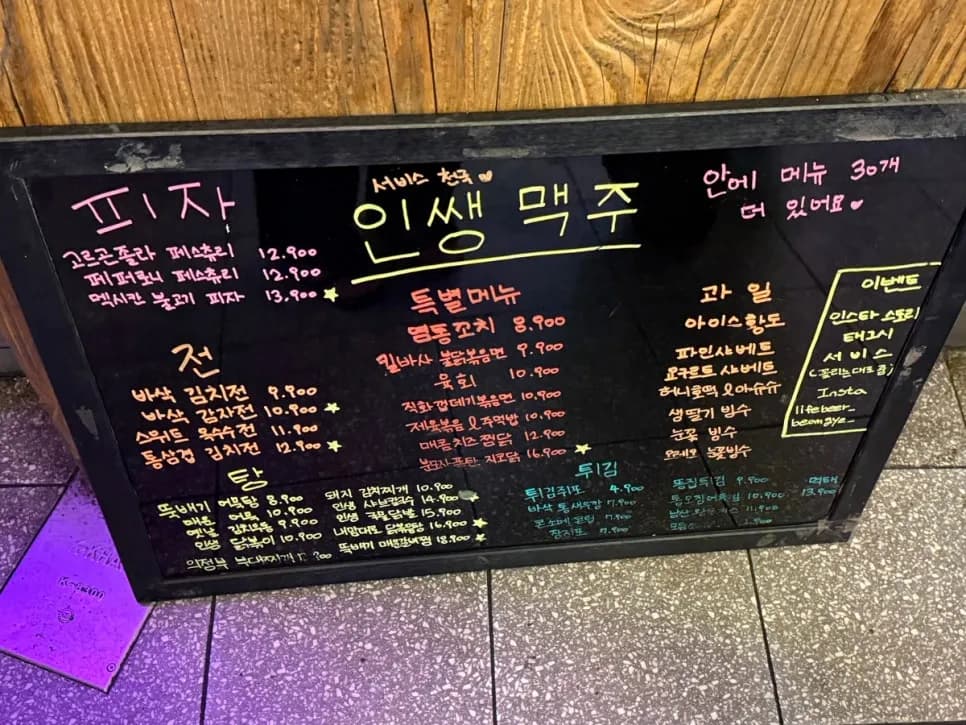 서비스 천국
인쌩 맥주
안에 메뉴 30개
더 있어요
피자
고르곤졸라 페스츄리 12.900
페퍼로니 페스츄리 12.900
멕시칸 불고기 피자 13.900
전
바삭 김치전 9.900
바삭 감자전 10.900
스위트 옥수수전 11.900
통삼겹 김치전 12.900
특별메뉴
염통꼬치 8.900
킬바사 불닭볶음면 9.900
육회 10.900
직화껍데기볶음면 10.900
제육볶음&주먹밥 10.900
매콤치즈찜닭 12.900
치코닭 16.900
과일
아이스황도
파인샤베트
요구르트 샤베트
생딸기 빙수
눈꽃 빙수
오레오 눈꽃빙수
이벤트
인스타 스토리
태그시
서비스
(꼴리는대로 줌)
Insta
lifebeer_
beomgye_
탕
뚝배기 어묵탕 8.900
매운 어묵 10.900
옛날 김치우동 9.900
인생 닭볶이 10.900
의정부 부대찌개
돼지 김치찌개 10.900
인생 샤브칼국수 14.900
인생 국물닭발 15.900
내맘대로 닭볶음탕 16.900
뚝배기 매콤갈비찜 18.900
튀김
튀김쥐포 4.900
바삭 통새우깡 7.900
7.900
9.900
똥집튀김 9.900
10.900
11.900
먹태
13.900